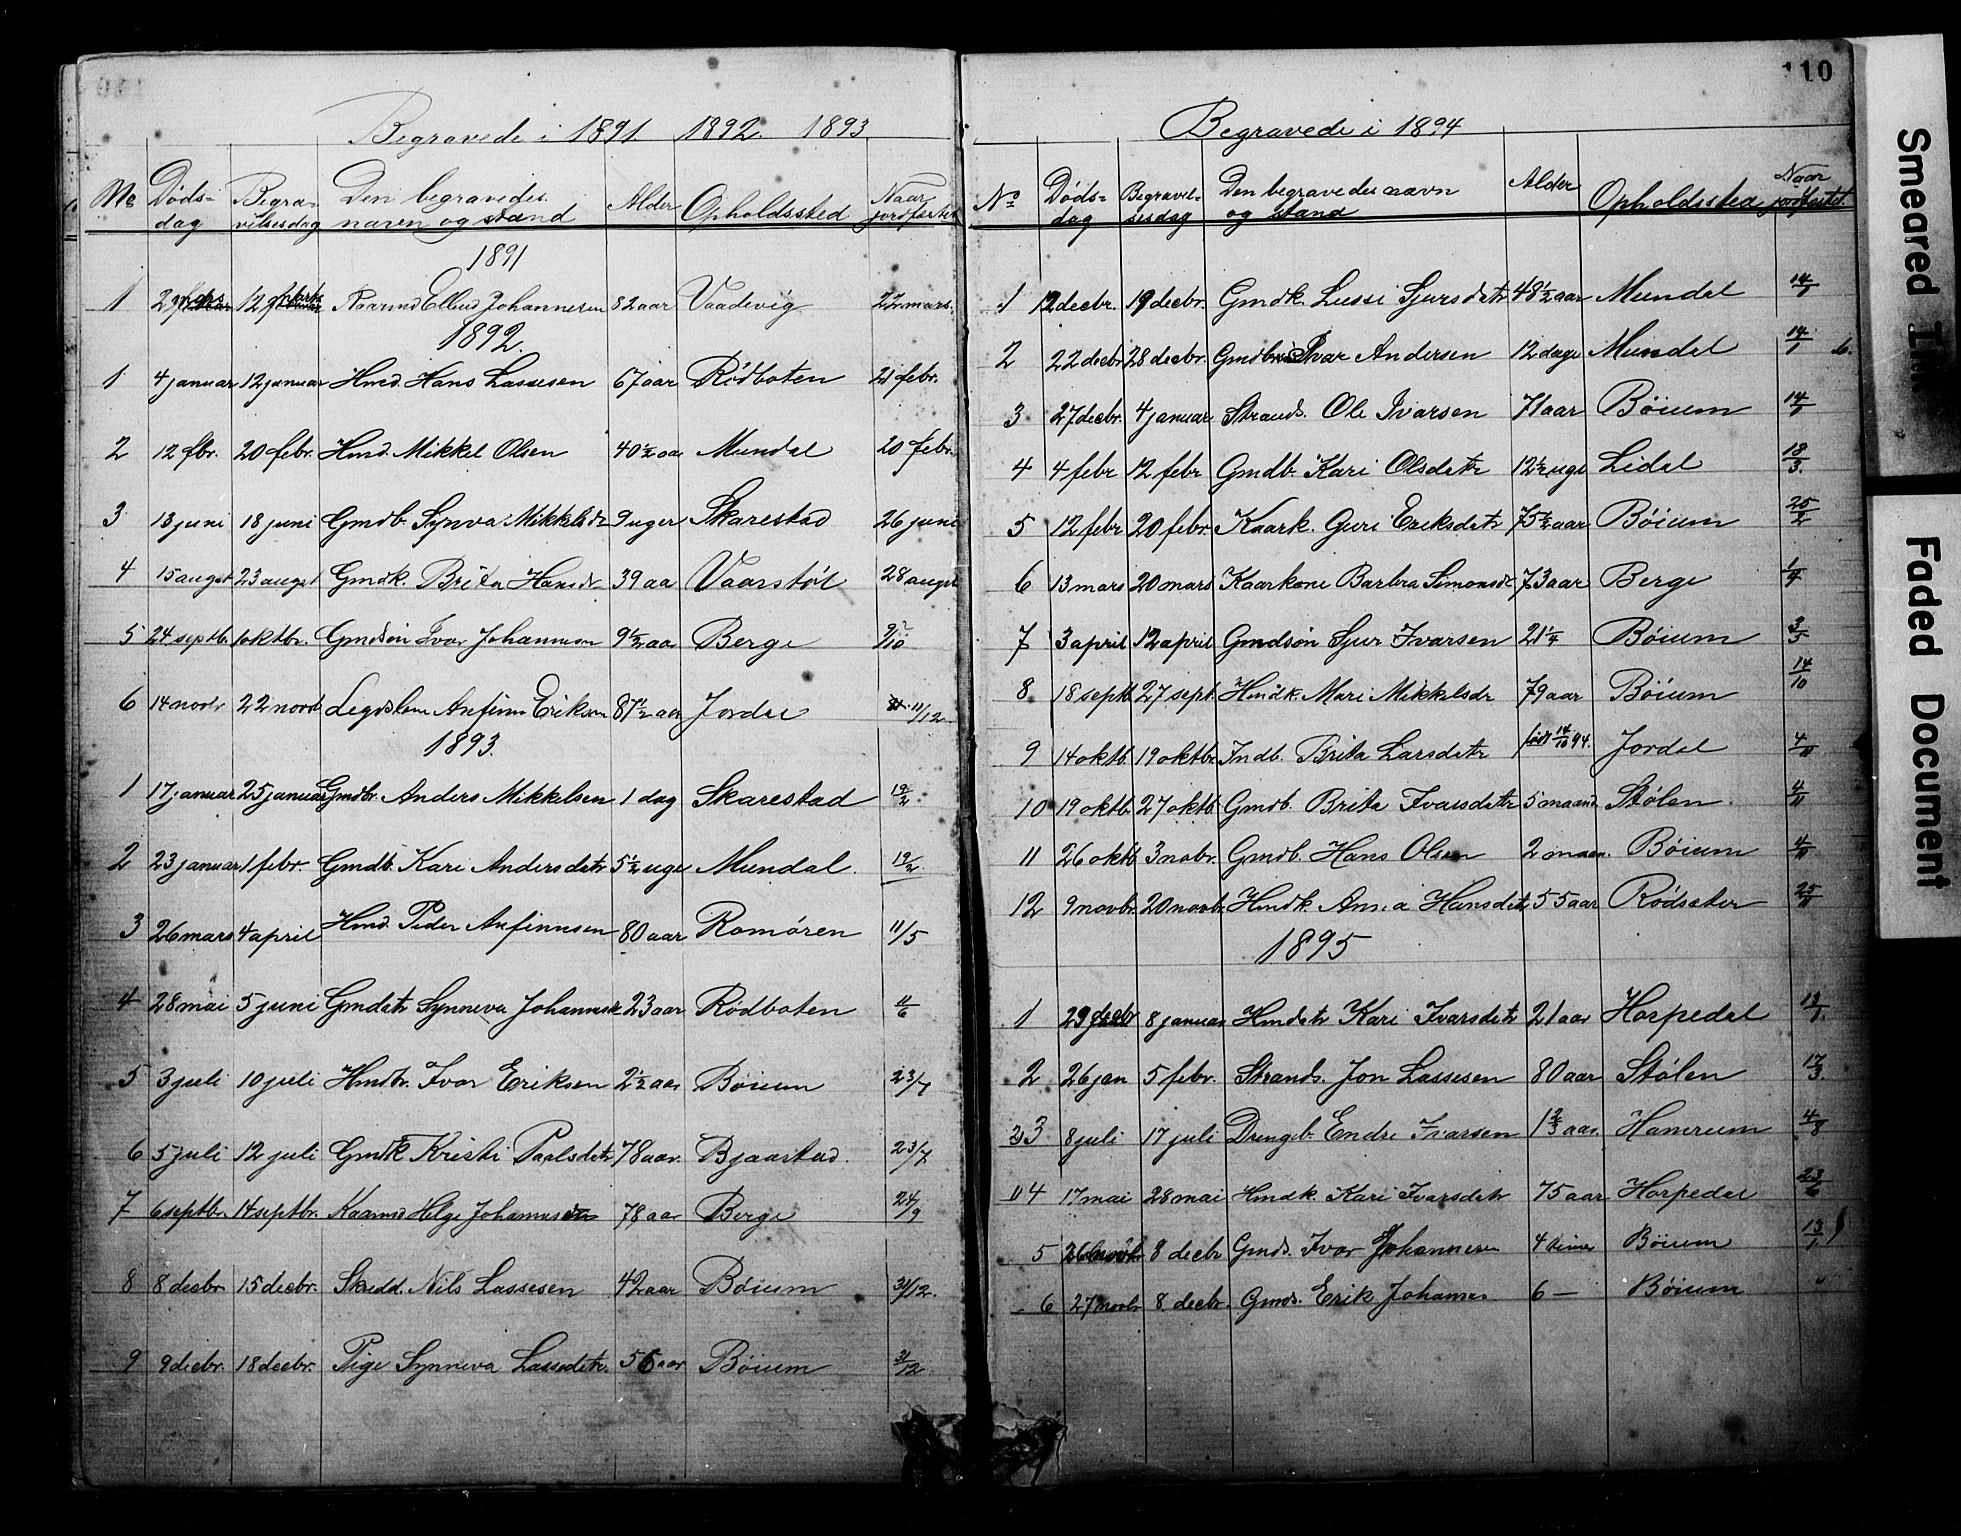 Begravede i 1891. 1892. 1893
No Døds-dag Begra-velsesdag Den begravedes navn og stand Alder Opholdssted Naar jordfæstet
1891
1 2 mars 12 Kaarmd Ellend Johannesen 82 aar Vaadevig 22 mars.
1892.
1 4 januar 12 januar Hmd. Hans Lassesen 67 aar Rødboten 21 febr.
2 12 fbr. 20 febr. Hmd. Mikkel Olsen 40 1/2 aar Mundal 20 febr.
3 13 juni 18 juni Gmdb. Synva Mikkelsdr 9 uger Skarestad 26 juni
4 15 augst 23 augst Gmdk. Brita Hansdr 39 aa Vaarstøl 28 augst
5 24 septb. 1 oktbr. Gmdsøn Ivar Johannesen 9 1/2 aar Berge 9/10
6 14 novbr 22 novb Legdslem Anfinn Eriksen 87 1/2 aar Jordal 11/12
1893.
1 17 januar 25 januar Gmdbr. Anders Mikkelsen 1 dag Skarestad 12/2
2 23 januar 1 febr. Gmdb. Kari Andersdatr 5 1/2 uge Mundal. 12/2.
3 26 mars 4 april Hmd. Peder Anfinnsen 80 aar Romøren 11/5
4 28 mai 5 juni Gmdatr Synneva Johannesdr 23 aar Rødboten 11/6
5 3 juli 10 juli Hmdbr. Ivar Eriksen 2 1/2 aar Bøium 23/7
6 5 juli 12 juli Gmdk Kristi Paalsdatr 78 aar. Bjaastad. 23/7
7 6 septb. 14 septbr. Kaarmd Helge Johannesen 78 aar Berge 24/9
8 8 decbr. 15 decbr. Skredd. Nils Lassesen 42 aar Bøium 31/12.
9 9 decbr. 18 decbr. Pige Synneva Lassedatr. 56 aar Bøium 31/12.
110
Begravede i 1894
No Døds-dag Begravel-sesdag Den begravedes navn og stand Alder Opholdssted Naar jordfæstet.
1 12 decbr. 19 decbr. Gmdk. Lussi Sjursdatr 48 1/2 aar Mundal 14/1
2 22 decbr 28 decbr. Gmdb Ivar Andersen 12 dage Mundal 14/1
3 27 decbr. 4 januar Strands. Ole Ivarsen 71 aar Bøium 14/1
4 4 febr 12 febr Gmdb. Kari Olsdatr 12 1/2 uge Lidal 18/3.
5 12 febr 20 febr. Kaark. Guri Eriksdatr 75 1/2 aar Bøium 25/2
6 13 mars 20 mars Kaarkone Barbra Simonsdr 73 aar Berge 1/4
7 3 april 12 april Gmdsøn Sjur Ivarsen 21 1/4 Bøium 3/5
8 18 septb 27 sept. Hmdk. Mari Mikkelsdr 79 aar Bøium 14/10
9 14 oktb. 19 oktbr. Indb. Brita Larsdatr født 14/10 94. Jordal 4/11
10 19 oktb. 27 oktb. Gmdb. Brita Ivarsdatr 5 maand Stølen. 4/11
11 26 oktb 3 nobr. Gmdb. Hans Olsen 2 maan. Bøium 4/11
12 9 novbr. 20 novbr. Hmdk. Anna Hansdatr 55 aar Rødsæter 25/11
1895
1 29 decbr 8 januar Hmdatr Kari Ivarsdatr 21 aar Horpedal 13/1.
2 26 jan 5 febr. Strands. Jon Lassesen 80 aar Stølen 17/3.
3 8 juli 17 juli Drengeb. Endre Ivarsen 1 2/3 aar. Hamrum 4/8
4 17 mai 28 mai Hmdk. Kari Ivarsdatr 75 aar Horpedal 23/6
5 26 novbr 8 decbr Gmds. Ivar Johannesen 4 timer Bøium 13/1
6 27 novbr 8 decbr. Gmds. Erik Johannes 6 — Bøium "
Smeared
Faded Document